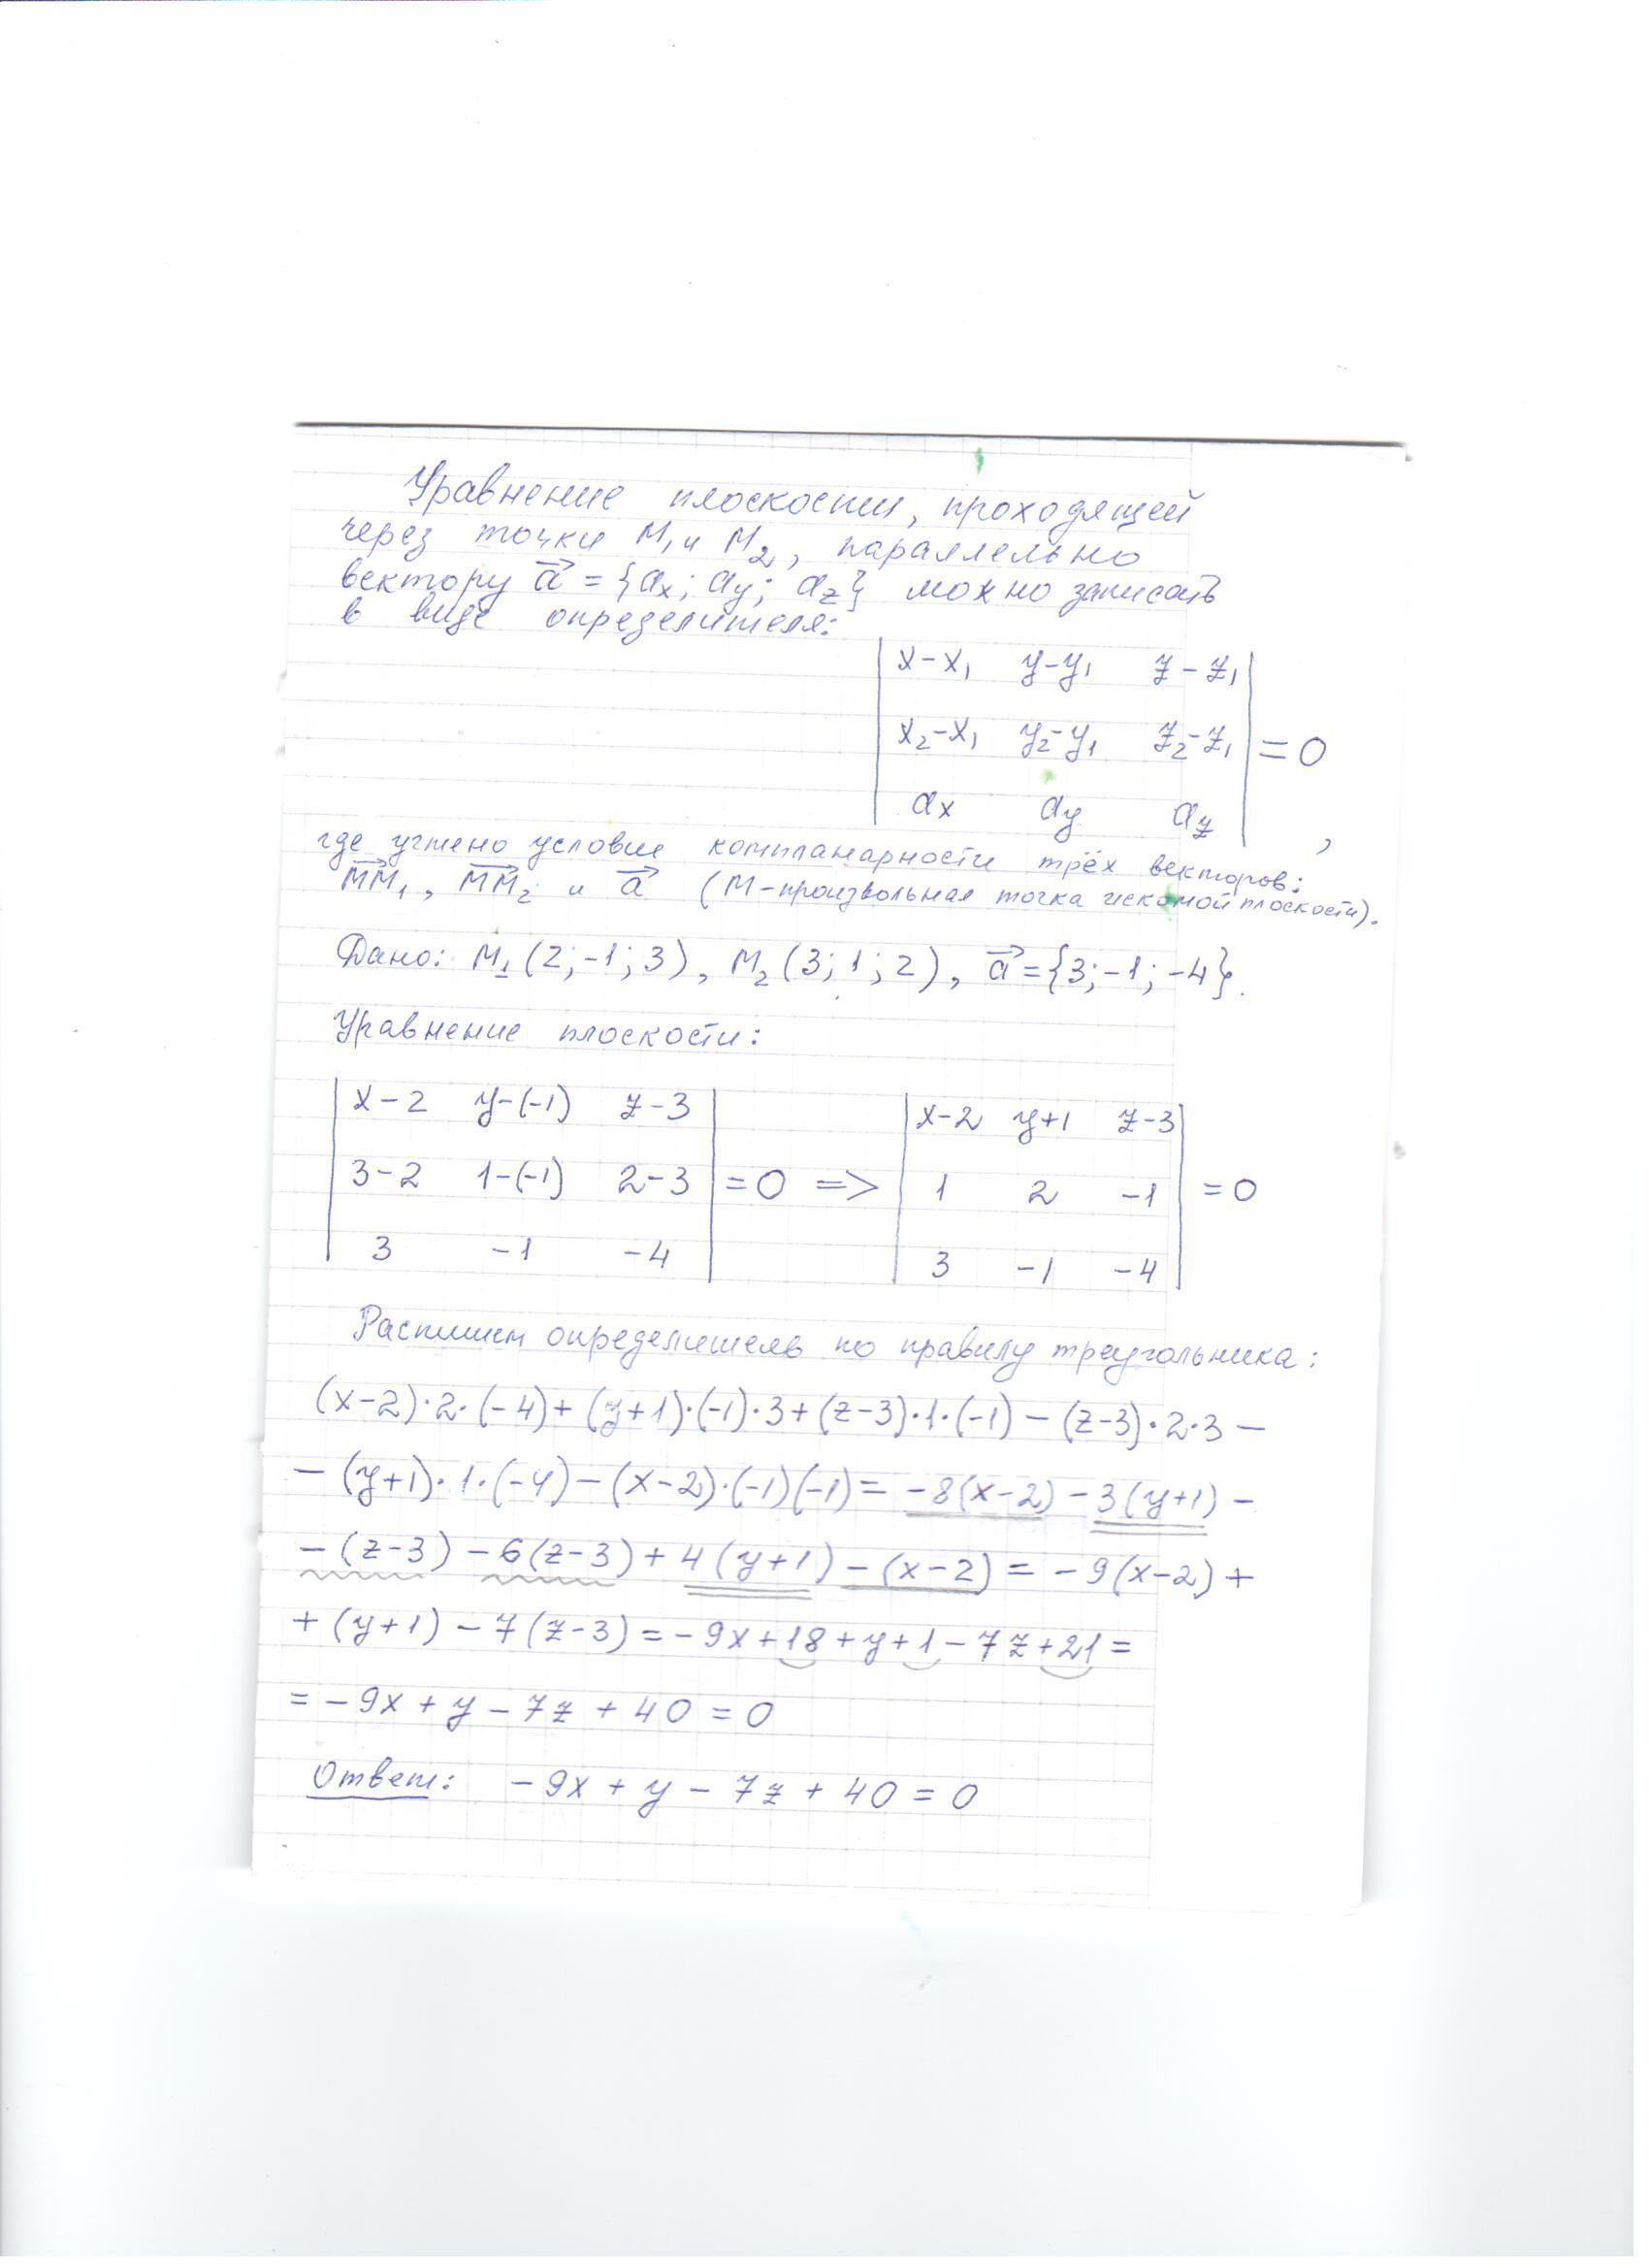 Уравнение плоскости, проходящей
через точки M₁ и M₂, параллельно
вектору a⃗ = {aₓ; a_y; a_z} можно записать
в виде определителя:
| x-x₁ y-y₁ z-z₁ |
| x₂-x₁ y₂-y₁ z₂-z₁ | = 0
| aₓ a_y a_z | ,
где учтено условие компланарности трёх векторов:
MM₁, MM₂ и a⃗ (M-произвольная точка искомой плоскости).
Дано: M₁ (2; -1; 3), M₂ (3; 1; 2), a⃗ = {3; -1; -4}.
Уравнение плоскости:
| x-2 y-(-1) z-3 | | x-2 y+1 z-3 |
| 3-2 1-(-1) 2-3 | = 0 => | 1 2 -1 | = 0
| 3 -1 -4 | | 3 -1 -4 |
Распишем определитель по правилу треугольника:
(x-2)·2·(-4)+(y+1)·(-1)·3+(z-3)·1·(-1)-(z-3)·2·3-
-(y+1)·1·(-4)-(x-2)·(-1)(-1)= -8(x-2)-3(y+1)-
-(z-3)-6(z-3)+4(y+1)-(x-2)= -9(x-2)+
+(y+1)-7(z-3)=-9x+18+y+1-7z+21=
= -9x+y-7z+40=0
Ответ: -9x+y-7z+40=0